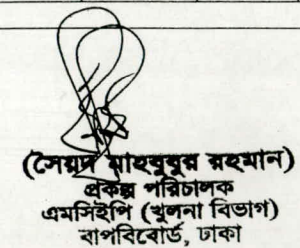 (সৈয়দ মাহবুবুর রহমান)
প্রকল্প পরিচালক
এমসিইপি (খুলনা বিভাগ)
বাপবিবোর্ড, ঢাকা